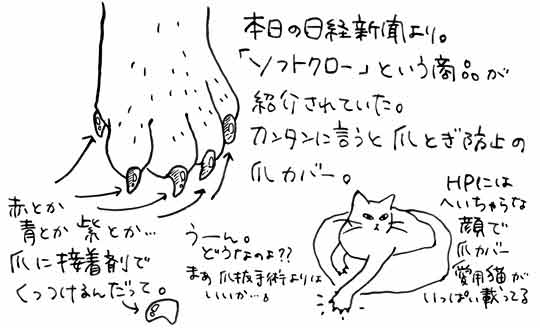 本日の日経新聞より。
「ソフトクロー」という商品が
紹介されていた。
カンタンに言うと爪とぎ防止の
爪カバー。
赤とか
青とか 紫とか…
爪に接着剤で
くっつけるんだって。
うーん。
どうなのよ??
まあ爪抜手術よりは
いいか…。
HPには
へいちゃらな
顔で
爪カバー
愛用猫が
いっぱい載ってる